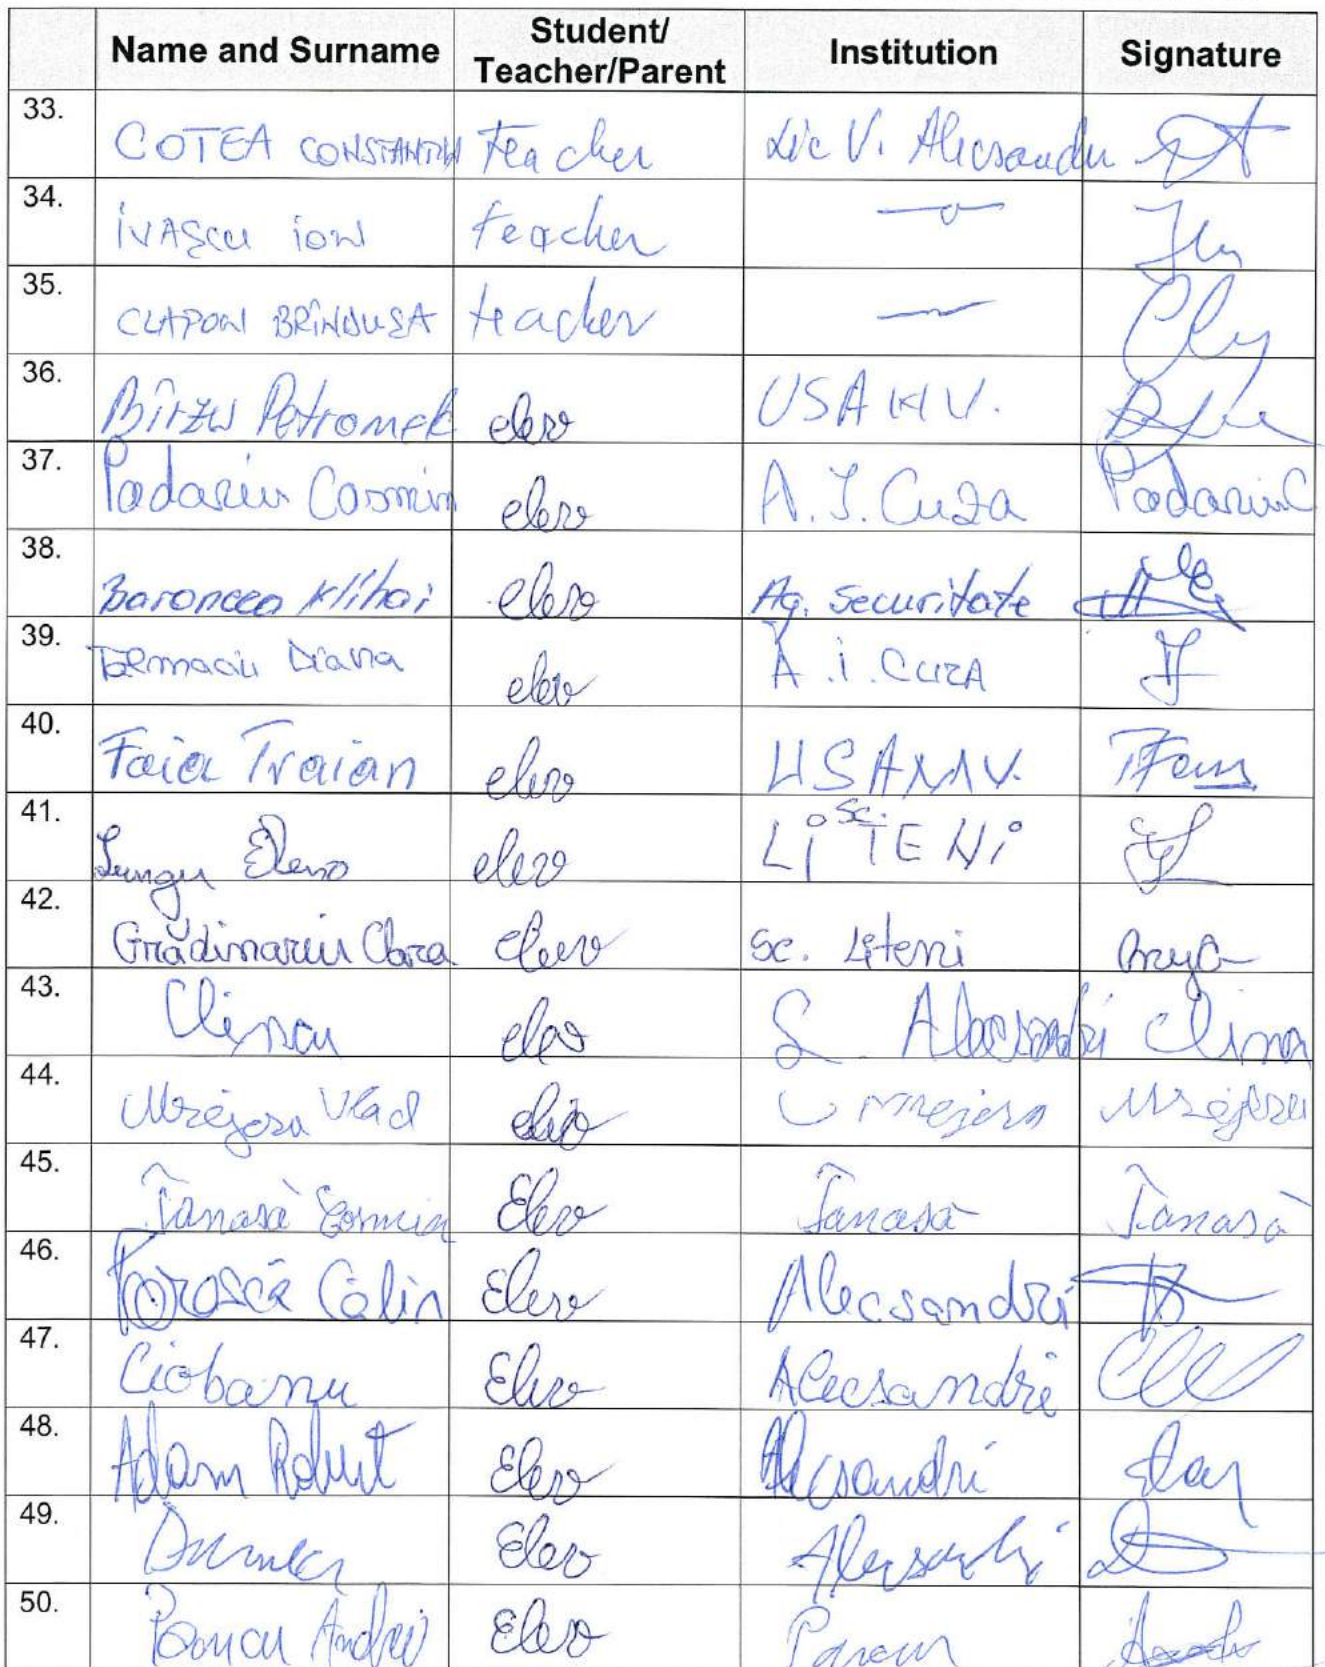 Name and Surname Student/ Teacher/Parent Institution Signature
33. COTEA CONSTANTIN teacher Lic V. Alecsandri
34. IVAȘCU ION teacher
35. CLAPON BRÎNDUSA teacher
36. Bîrzu Petronel elev USAMV.
37. Padariu Cosmin elev A. I. Cuza Padariu C
38. Baroncea Mihai elev Ag. Securitate
39. Diana elev A.I. CUZA
40. Faia Traian elev USAMV.
41. Lungu Elena elev Sc. LiTENi
42. Grădinariu Clara elev Sc. Liteni
43. elev Alecsandri
44. Vlad elev
45. Tanasă Cosmin Elev Tanasă Tanasă
46. Călin Elev Alecsandri
47. Ciobanu Elev Alecsandri
48. Adam Robert Elev Alecsandri
49. Elev Alecsandri
50. Andrei Elev